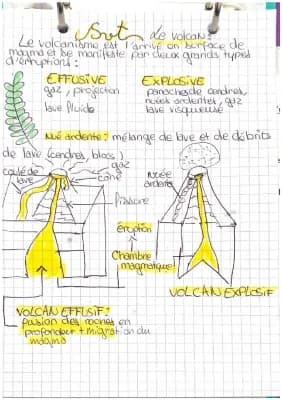 Svt Le volcan:
Le volcanisme est l'arrivé en surface de
magma et se manifeste par deux grands types
d'éruptions:
EFFUSIVE
EXPLOSIVE
gaz, projection
lave fluide
panaches de cendres,
nuées ardentes, gaz
lave visqueuse
Nué ardente: mélange de lave et de débrits
de lave (cendres, blocs)
gaz
coulé de
lave
cone
Nuée
ardente
fissure
éruption
chambre
magmatique
VOLCAN EXPLOSIF
VOLCAN EFFUSIF:
fusion des roches en
profondeur + migration du
magma